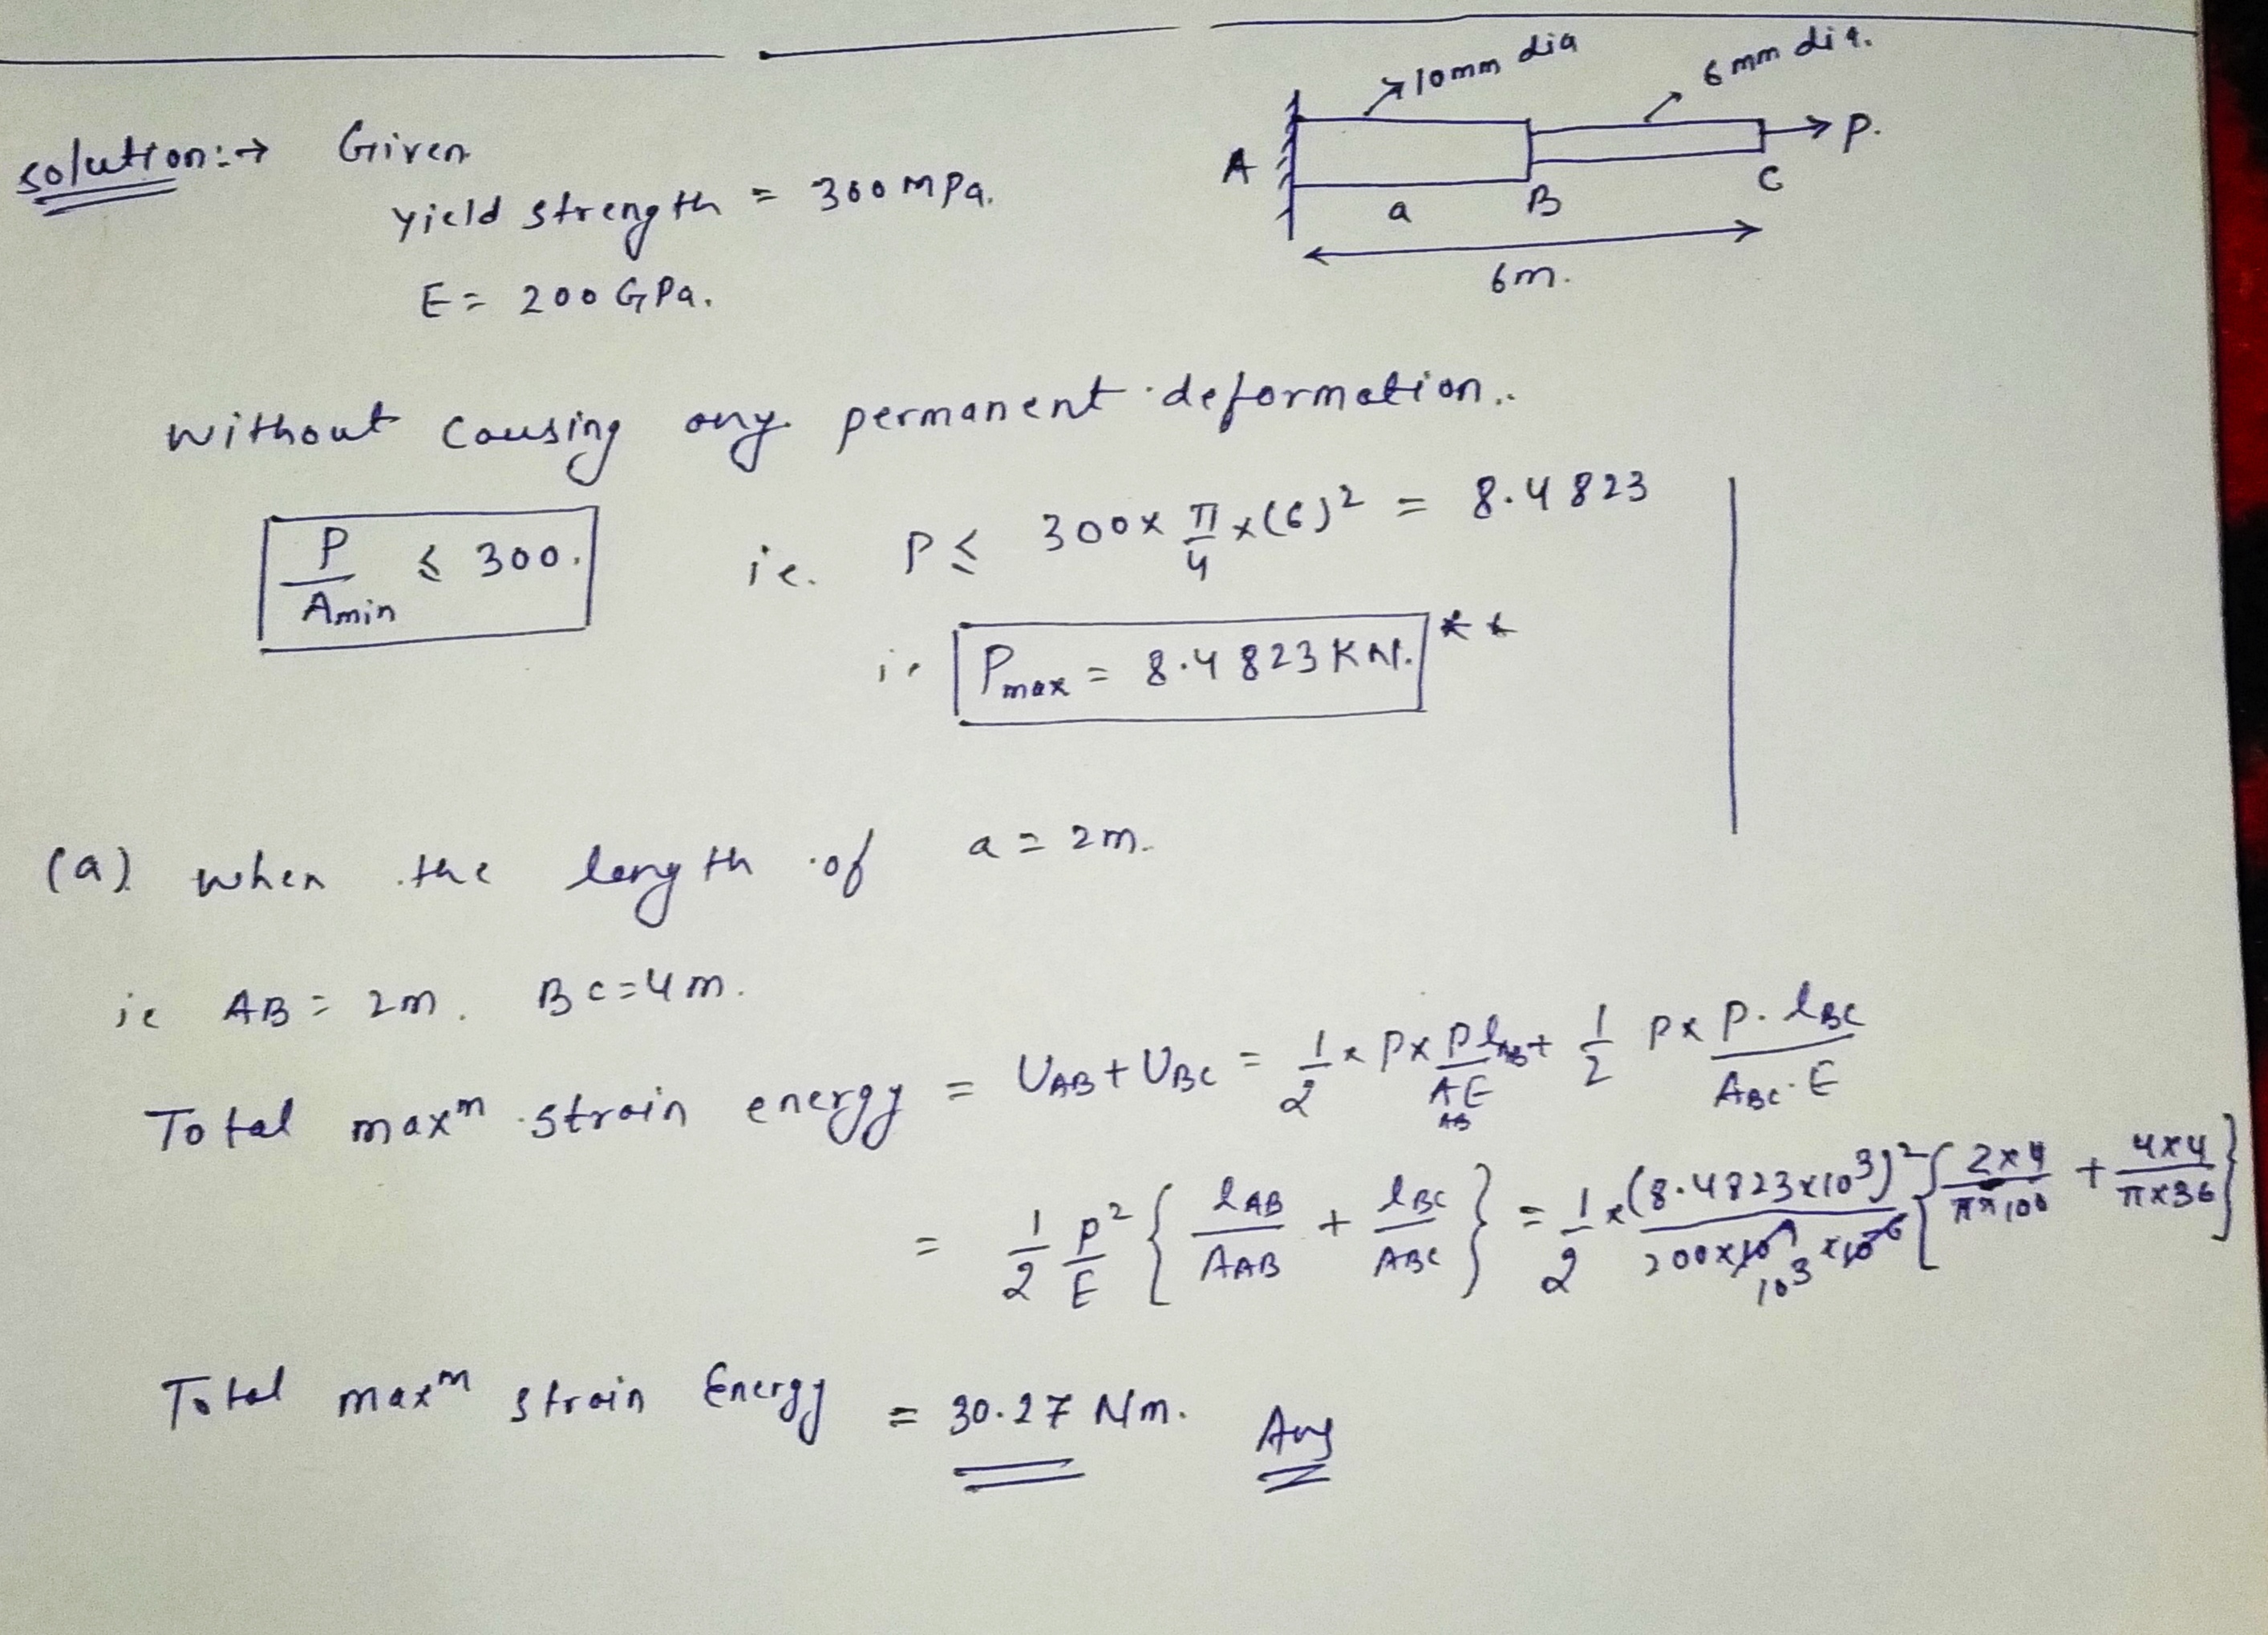 10mm dia
6mm dia.
A
P.
a
B
C
6m.
solution:→ Given
Yield strength = 300 MPa.
E = 200 GPa.
Without causing any permanent deformation.
P/Amin ≤ 300. ie. P ≤ 300 × π/4 × (6)² = 8.4823
ie Pmax = 8.4823 KN. **
(a) when the length of a = 2m.
ie AB = 2m. BC = 4m.
Total maxᵐ strain energy = UAB + UBC = 1/2 × P × PlAB/AABE + 1/2 P × P.lBC/ABC.E
= 1/2 P²/E { lAB/AAB + lBC/ABC } = 1/2 × (8.4823×10³)²/200×10³ { 2×4/π×100 + 4×4/π×36 }
Total maxᵐ strain Energy = 30.27 Nm. Ans